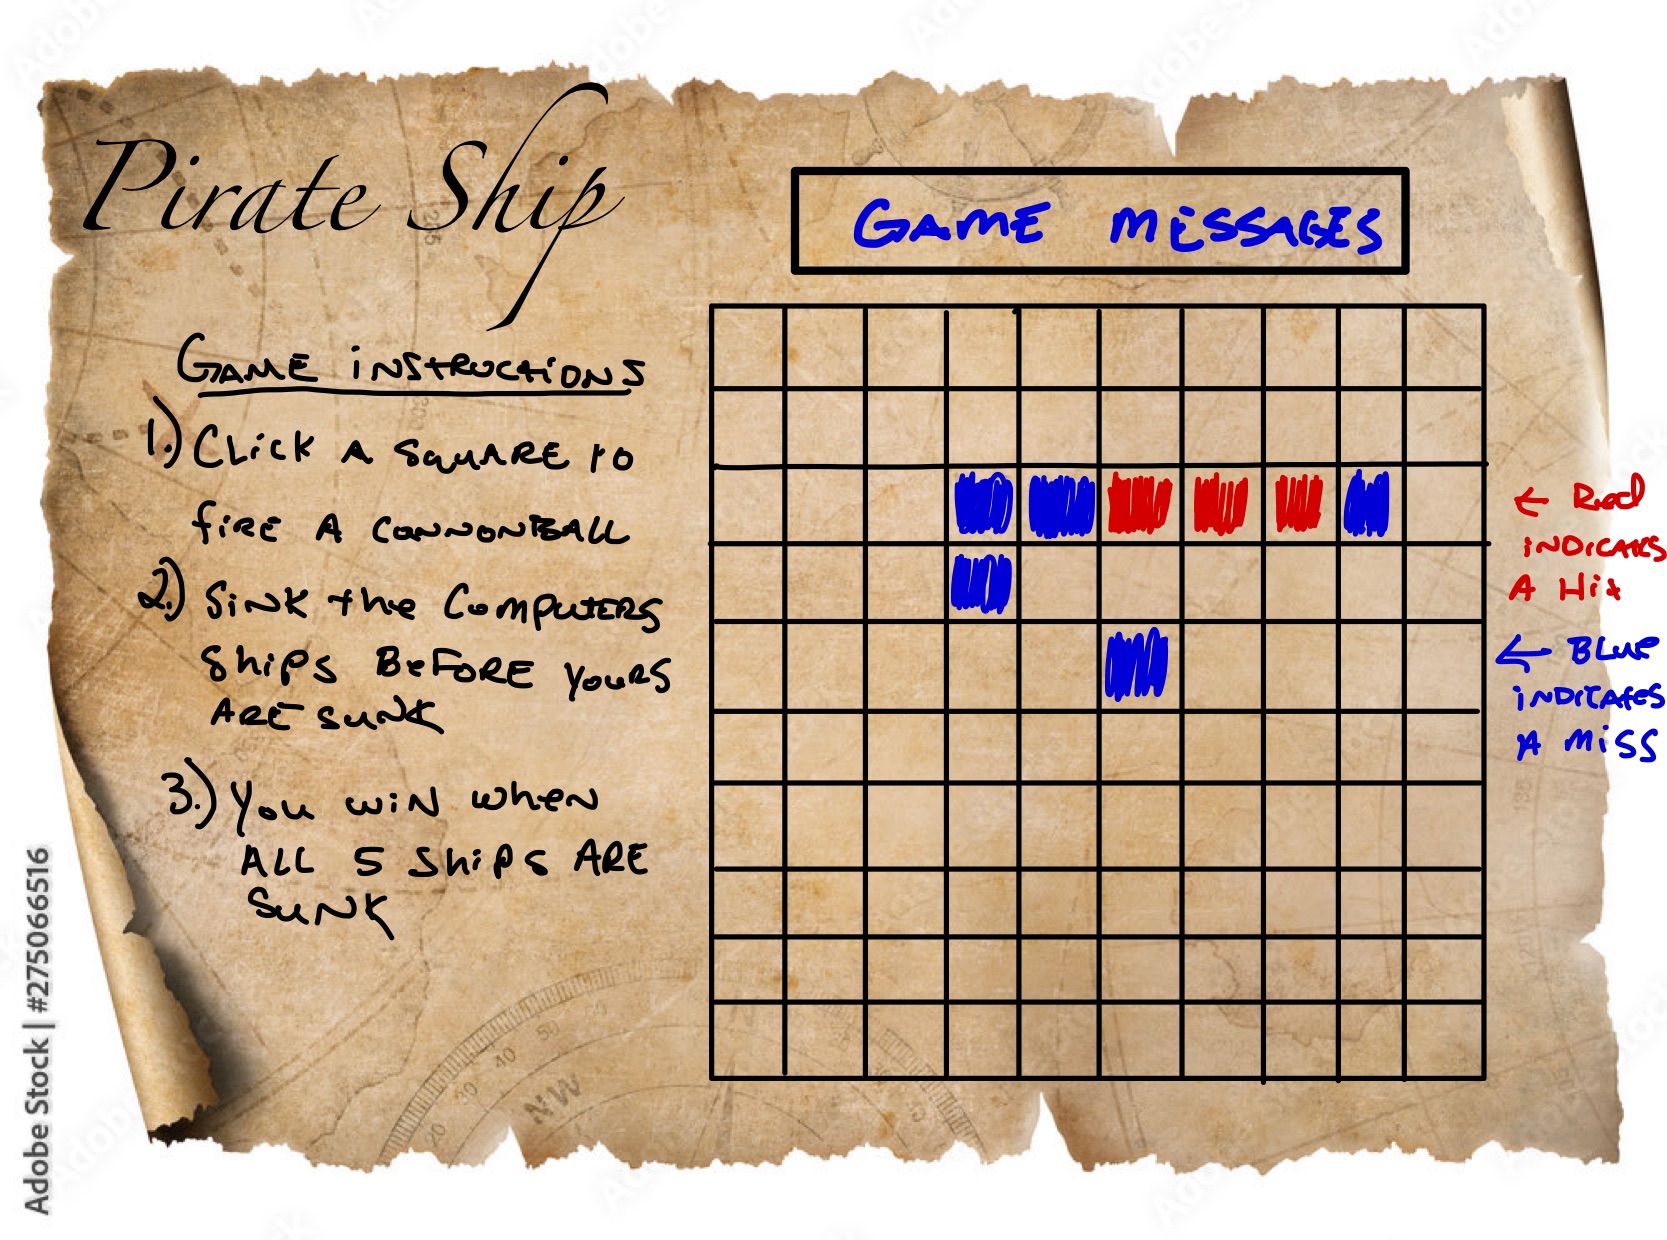 Pirate Ship
GAME MESSAGES
GAME INSTRUCTIONS
1.) CLICK A SQUARE TO
FIRE A CONNONBALL
2.) SINK the COMPUTERS
Ships BEFORE YOURS
ARE SUNK
3.) YOU WIN WHEN
ALL 5 SHIPS ARE
SUNK
← Red
INDICATES
A Hit
← BLUE
INDICATES
A MISS
120
30
40
50
60
NW
20
Adobe Stock | #275066516